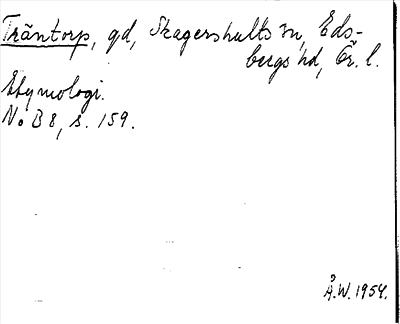 Träntorp, gd, Skagershults sn, Eds-
bergs hd, Ör. l.
Etymologi.
NoB 8, s. 159.
Å.W. 1954.